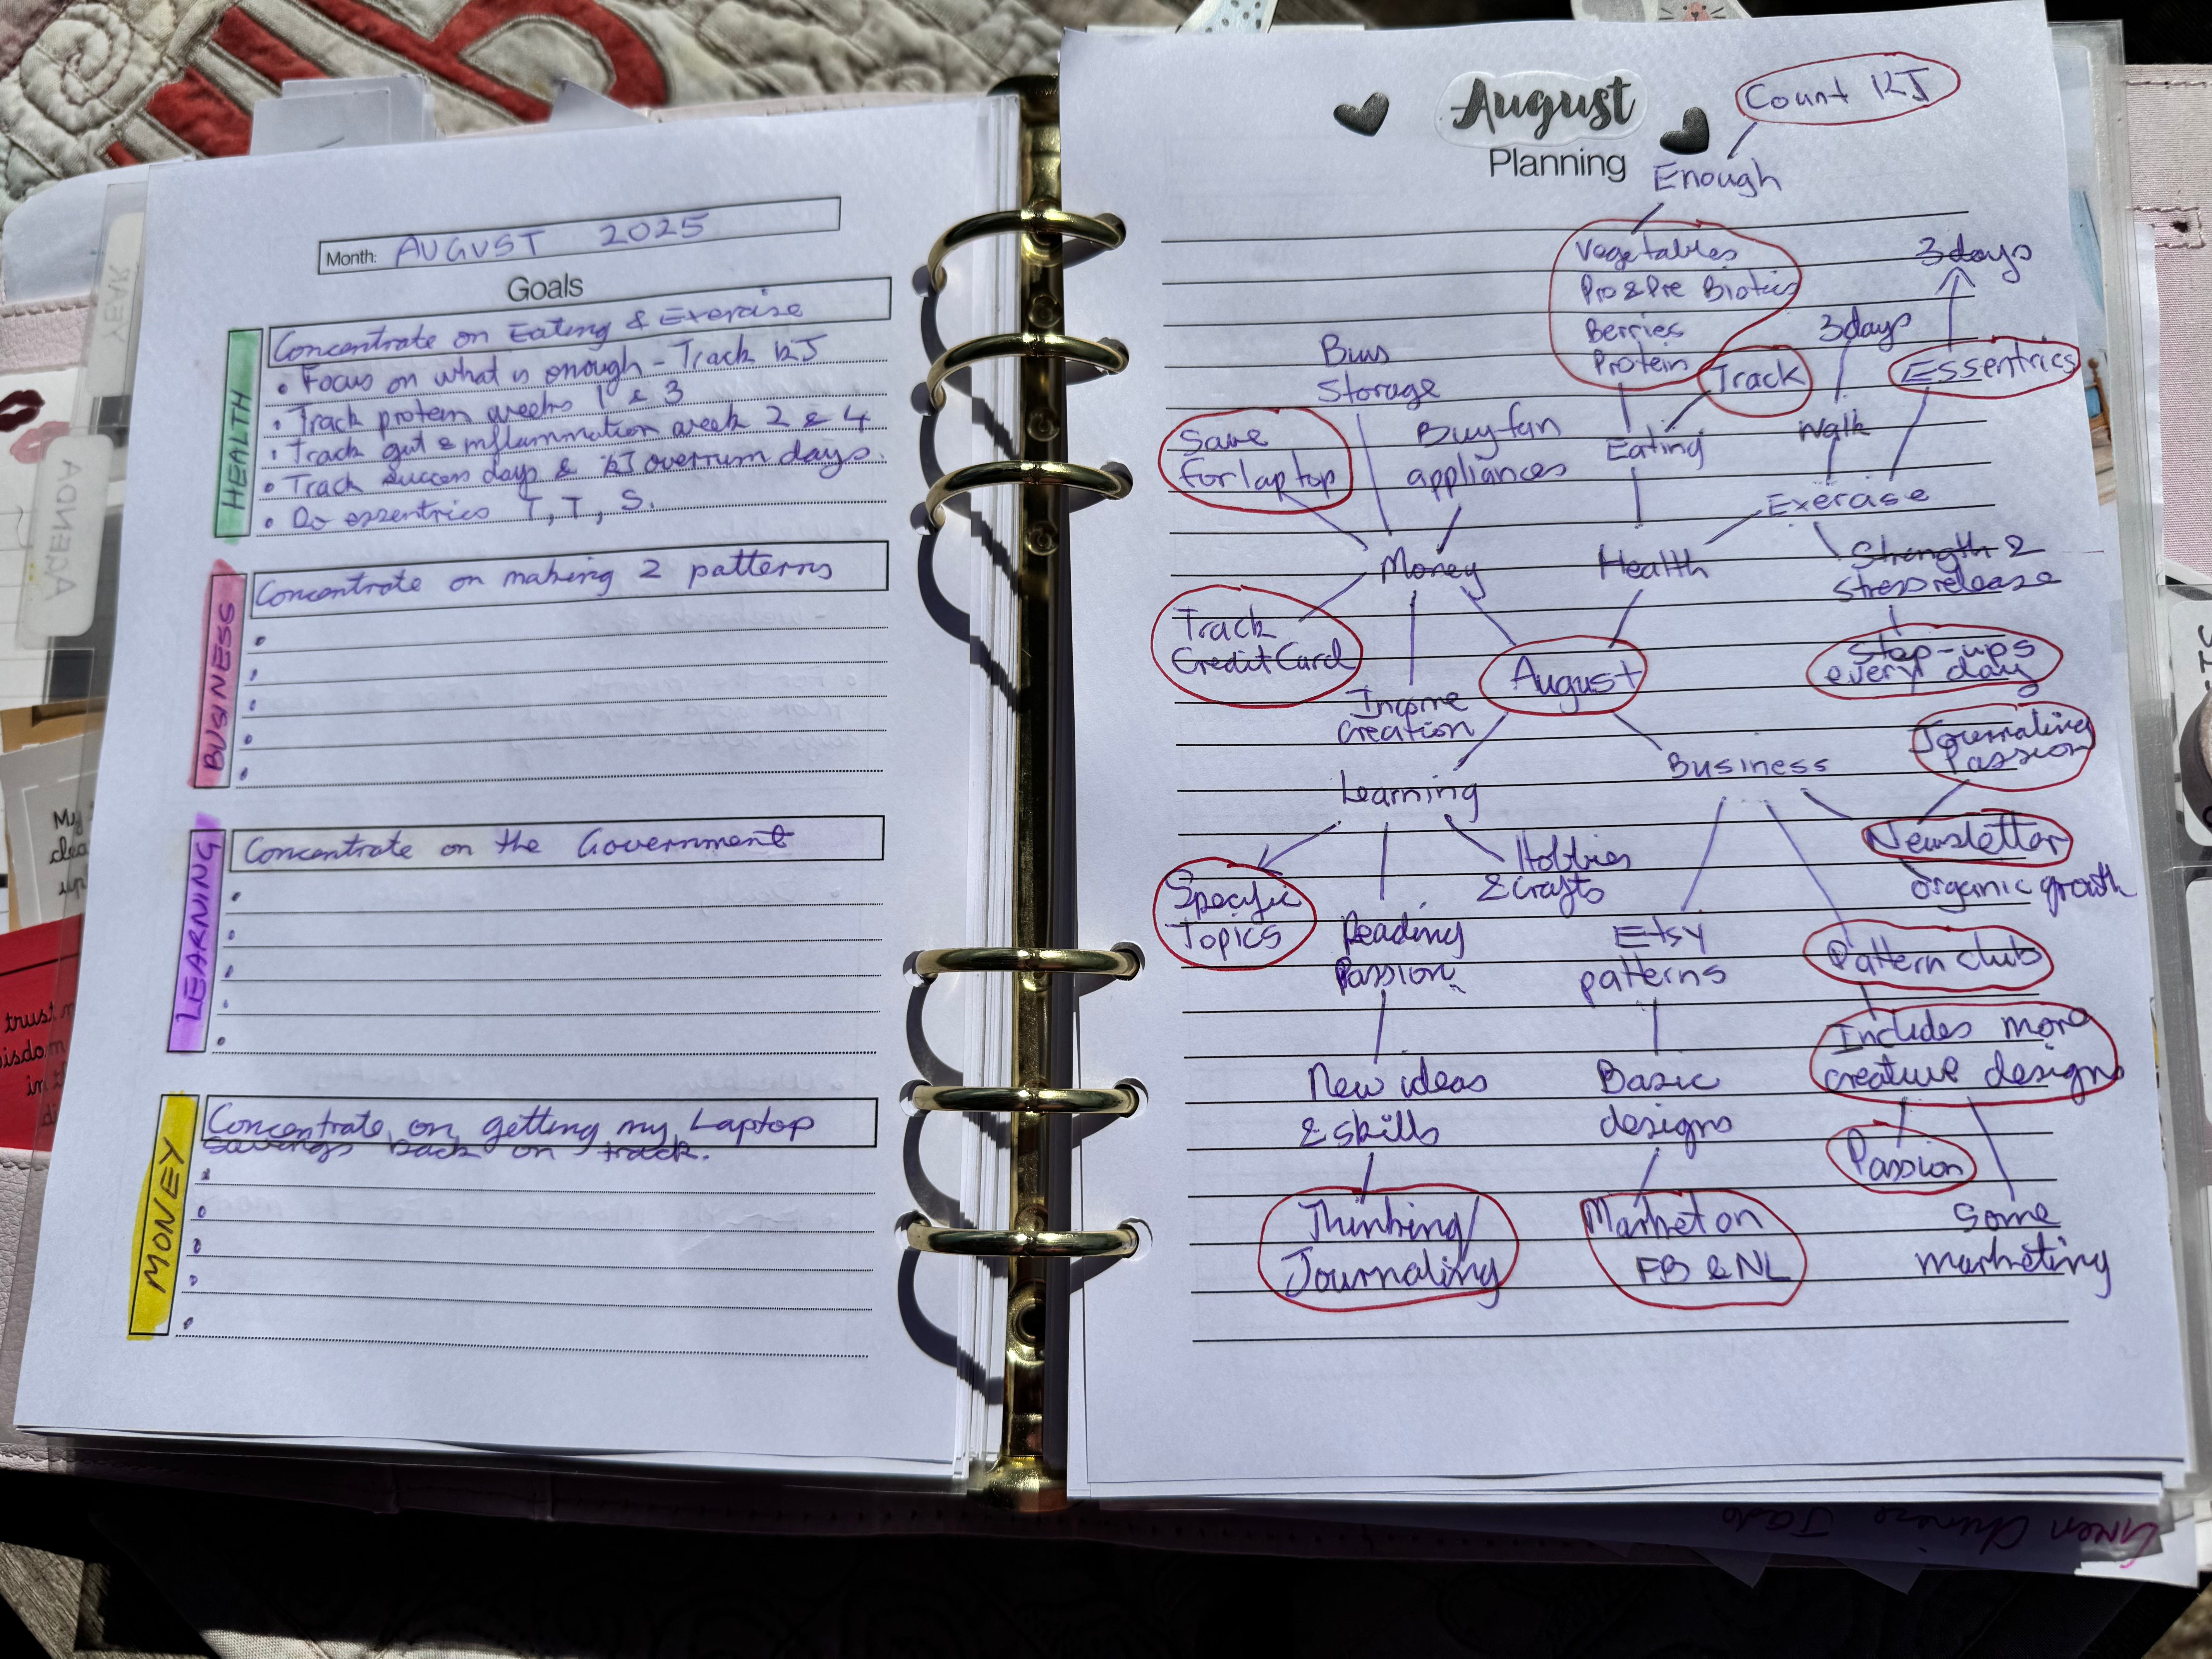 Month: AUGUST 2025
Goals
HEALTH
Concentrate on Eating & Exercise
• Focus on what is enough - Track KJ
• Track protein weeks 1 & 3
• Track gut & inflammation week 2 & 4
• Track success days & KJ overrun days.
• Do essentrics T, T, S.
BUSINESS
Concentrate on making 2 patterns
LEARNING
Concentrate on the Government
MONEY
Concentrate on getting my Laptop
savings back on track.
YEAR
AGENDA
My
trust
August
Planning
Count KJ
Enough
Vegetables
Pro & Pre Biotics
Berries
Protein
3 days
3 days
Essentrics
Track
Storage
Save
for laptop
Buy fan
appliances
Eating
Walk
Exercise
Money
Health
Strength &
stress release
Track
Credit Card
August
Step-ups
every day
Income
Creation
Journaling
Passion
Business
Learning
Newsletter
organic growth
Hobbies
& Crafts
Specific
Topics
Reading
Passion
Etsy
patterns
Pattern club
Includes more
creative designs
New ideas
& skills
Basic
designs
Passion
Thinking/
Journaling
Market on
FB & NL
Some
marketing